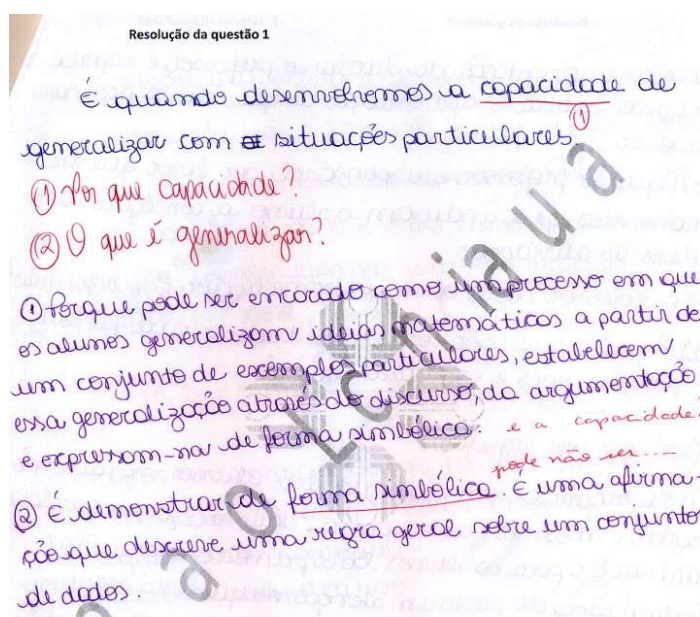 Resolução da questão 1
É quando desenvolvemos a capacidade de
generalizar com situações particulares. (1)
(1) Por que capacidade?
(2) O que é generalizar?
(1) Porque pode ser encarado como um processo em que
os alunos generalizam idéias matemáticas a partir de
um conjunto de exemplos particulares, estabelecem
essa generalização através do discurso, da argumentação
e expressam-na de forma simbólica. e a capacidade?
pode não ser...
(2) É demonstrar de forma simbólica É uma afirma-
ção que descreve uma regra geral sobre um conjunto
de dados.